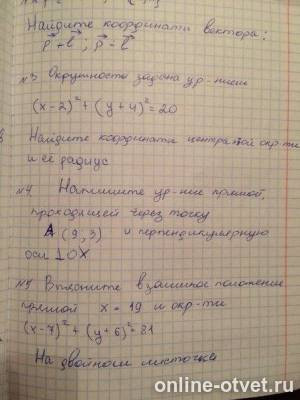 Найдите координаты вектора:
p + b ; p - b
№3 Окружность задана ур-нием
(x-2)² + (y+4)² = 20
Найдите координаты центра этой окр-ти
и её радиус
№4 Напишите ур-ние прямой,
проходящей через точку
A (9, 3) и перпендикулярную
оси ⊥OX
№5 Выясните взаимное положение
прямой x = 19 и окр-ти
(x-7)² + (y+6)² = 81
На двойном листочке
online-otvet.ru